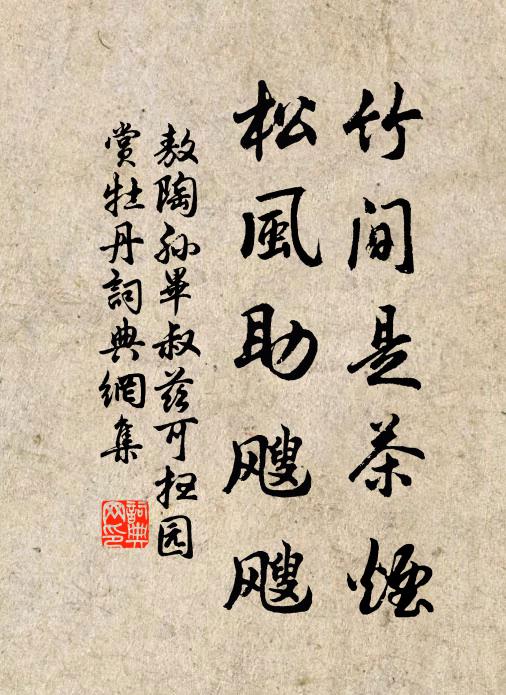 竹间是茶煙
松風助飕飕
敖陶孙畢叔兹可扗园
賞牡丹詞典網集
詞典網印